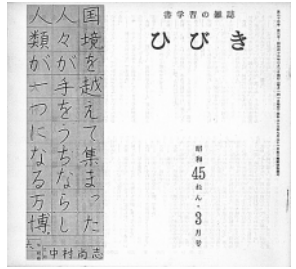 書学習の雑誌
ひびき
昭和45ねん・3月号
国境を越えて集まった
人々が手をうちならし
人類が一つになる万博
六年
中村尚志